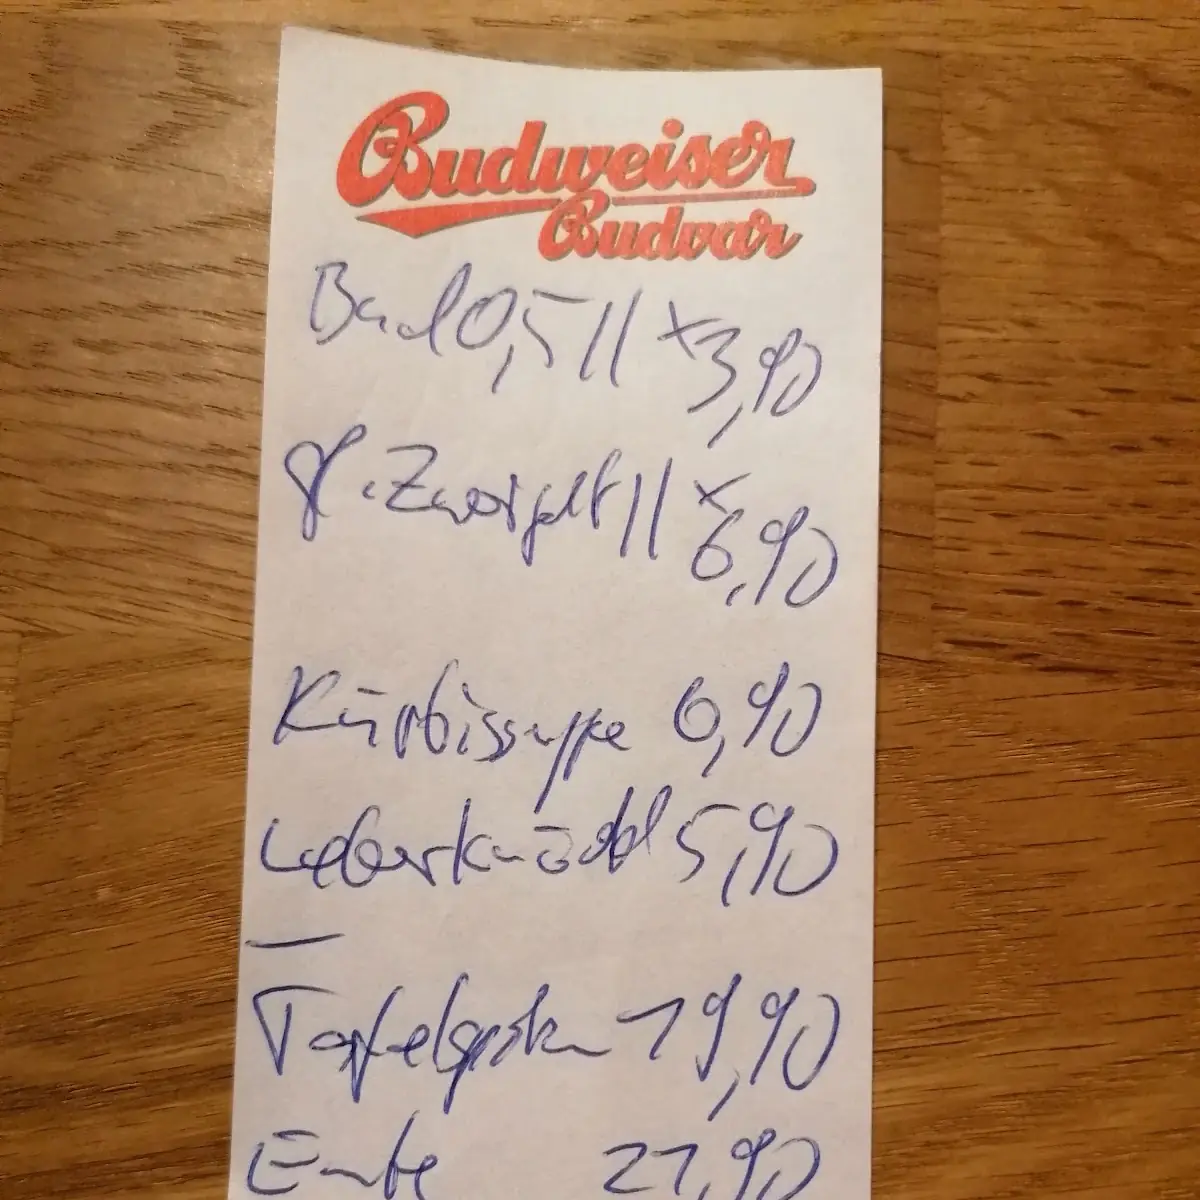 Budweiser
Budvar
Bud 0,5 || x 3,90
gl. Zweigelt || x 6,90
Kürbissuppe 6,90
Leberknödel 5,90
—
Tafelspitz 19,90
Ente 21,90